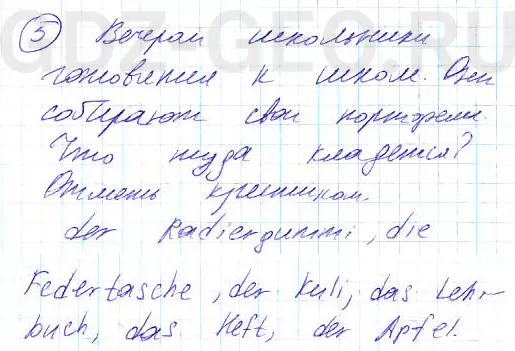 GDZ-GEO.RU
5 Вечером школьники
готовятся к школе. Они
собирают свои портфели.
Что туда кладется?
Отметь крестиком.
der Radiergummi, die
Federtasche, der Kuli, das Lehr-
buch, das Heft, der Apfel.